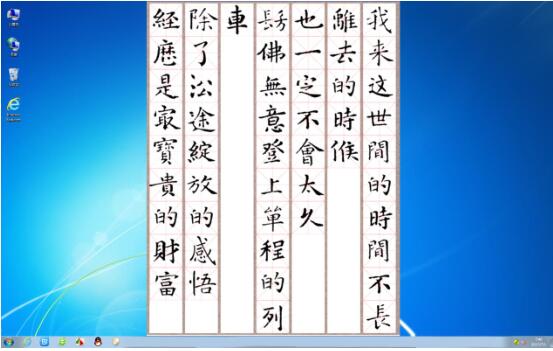 我来这世間的時間不長
離去的時候
也一定不會太久
髣佛無意登上單程的列
車
除了沿途綻放的感悟
経歷是寂寶貴的財富